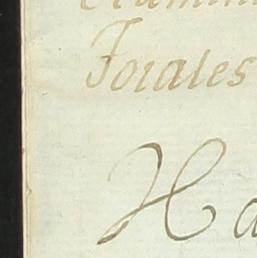 Forales
Ha